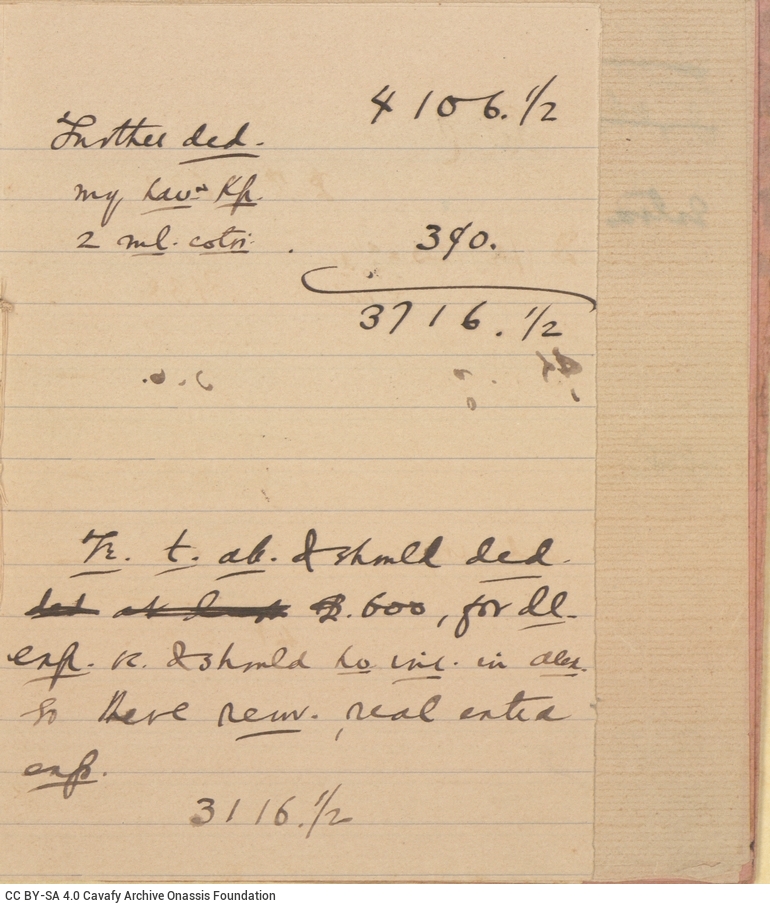 4106.1/2
Further ded.
my havn Kp.
2 ml. cotri. 390.
3716.1/2
Fr. t. ab. I should ded.
P.600, for dl.
exp. I should in alex.
So there remr. real extra
exp.
3116.1/2
CC BY-SA 4.0 Cavafy Archive Onassis Foundation